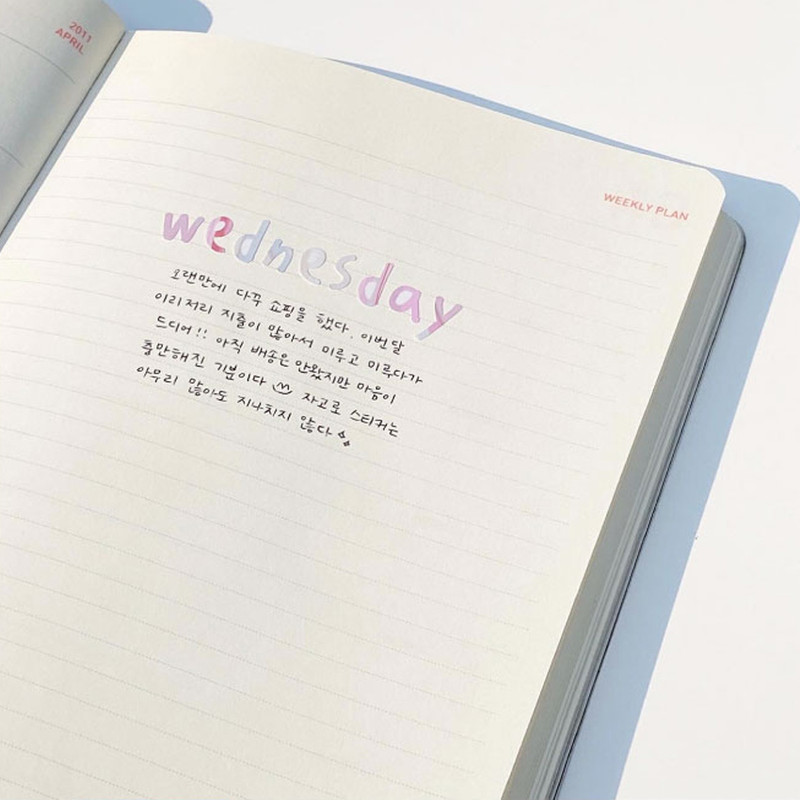 2011
APRIL
WEEKLY PLAN
wednesday
오랜만에 다꾸 쇼핑을 했다. 이번달
이리저리 지출이 많아서 미루고 미루다가
드디어!! 아직 배송은 안왔지만 마음이
충만해진 기분이다 자고로 스티커는
아무리 많아도 지나치지 않다